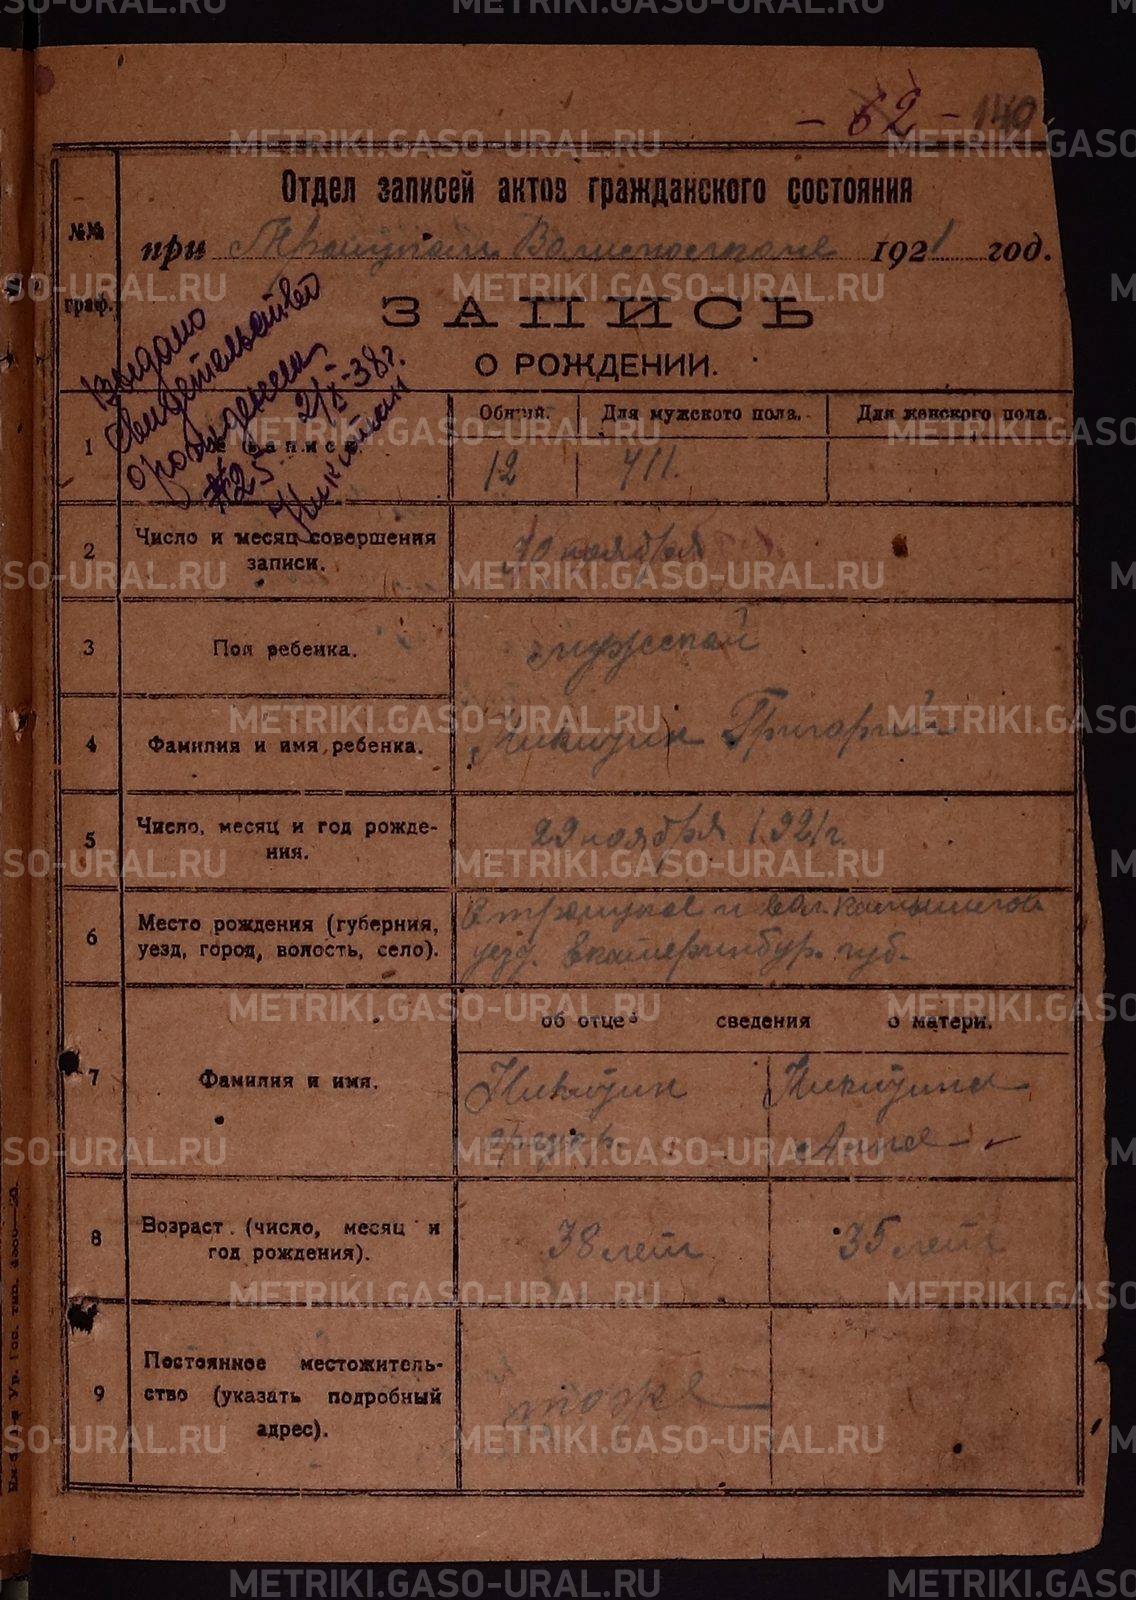 - 62 - 140
Отдел записей актов гражданского состояния
№№
граф.
при Троицком Волисполкоме 1921 год.
ЗАПИСЬ
О РОЖДЕНИИ.
Выдано
свидетельство
о рождении
№ 25 21/X-38 г.
Общий. Для мужского пола. Для женского пола.
1 № записи. 12
2 Число и месяц совершения записи. 30 ноября
3 Пол ребенка. мужской
4 Фамилия и имя ребенка. Григорий
5 Число, месяц и год рождения. 29 ноября 1921 г.
6 Место рождения (губерния,
уезд, город, волость, село).
С троицкое и вол. камышлов.
уезд. Екатеринбур. губ.
об отце сведения о матери.
7 Фамилия и имя.
Анна
8 Возраст (число, месяц и
год рождения).
38 лет 35 лет
9 Постоянное местожитель-
ство (указать подробный
адрес).
тоже
METRIKI.GASO-URAL.RU